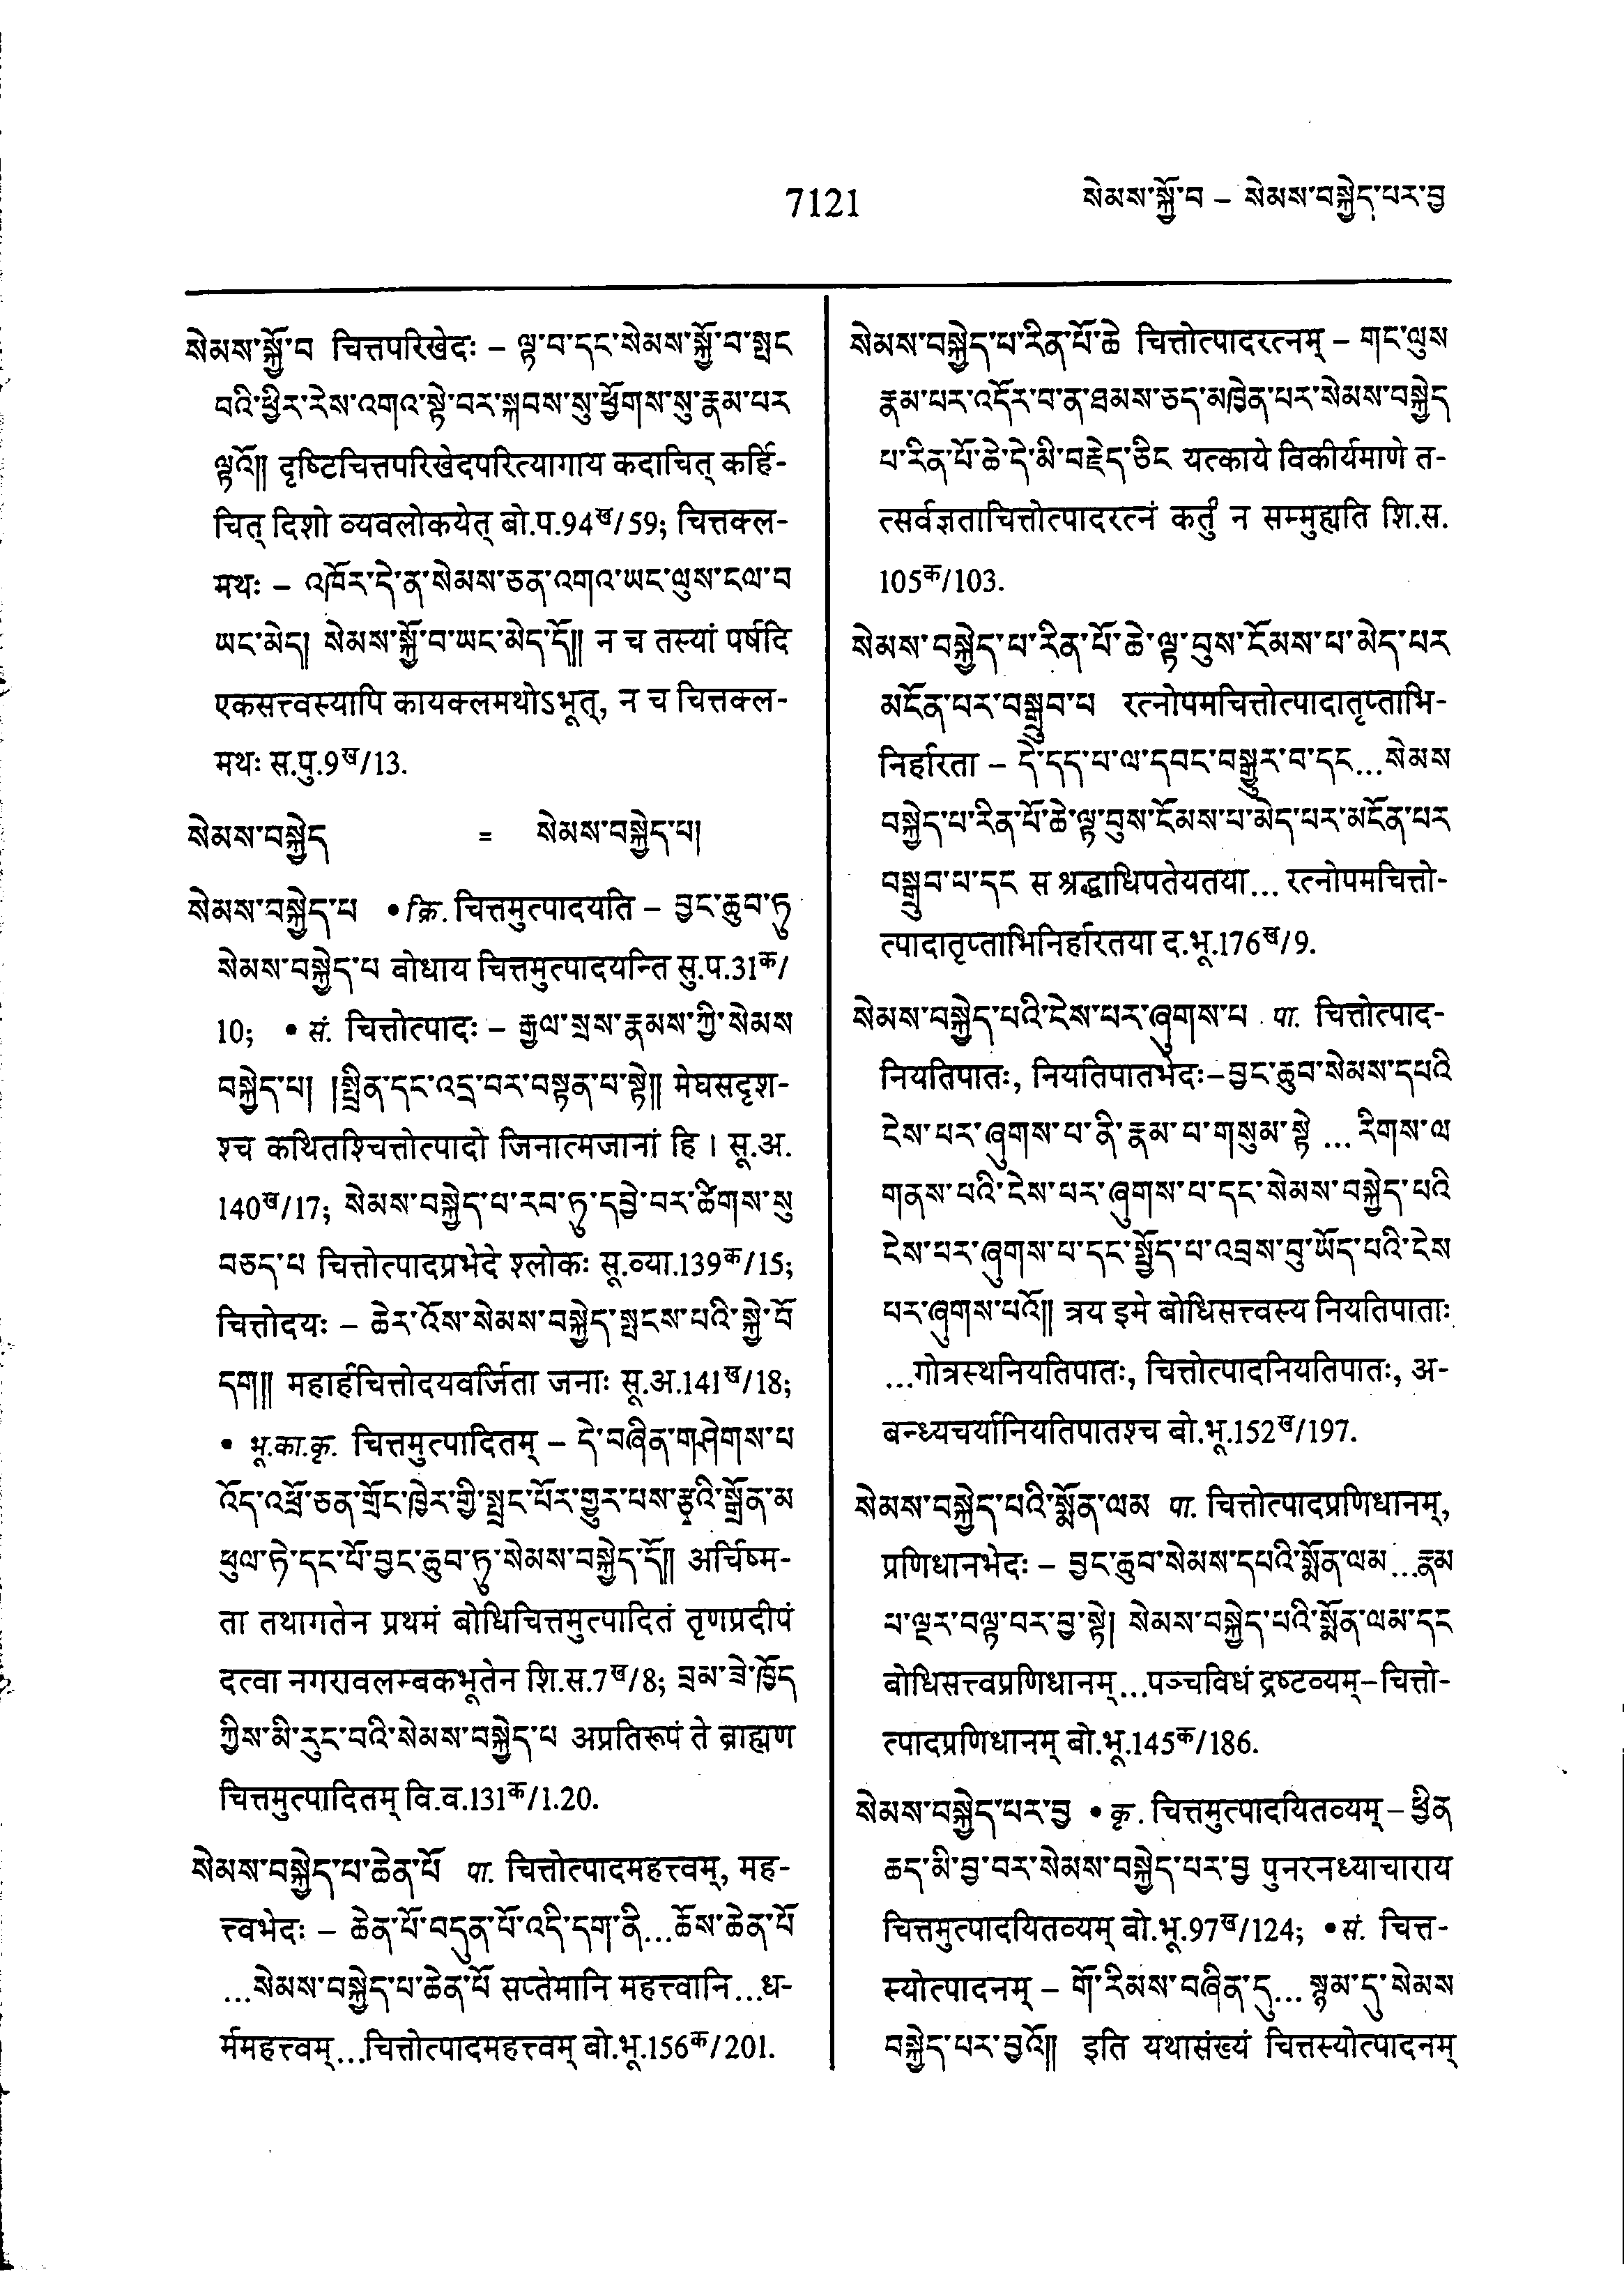 7121
སེམས་སྐྱོ་བ – སེམས་བསྐྱེད་པར་བྱ
སེམས་སྐྱོ་བ चित्तपरिखेदः – ལྟ་བ་དང་སེམས་སྐྱོ་བ་སྤང
བའི་ཕྱིར་རེས་འགའ་སྟེ་བར་སྐབས་སུ་ཕྱོགས་སུ་རྣམ་པར
ལྟའོ༎ दृष्टिचित्तपरिखेदपरित्यागाय कदाचित् कर्हि-
चित् दिशो व्यवलोकयेत् बो.प.94ख/59; चित्तक्ल-
मथः – འཁོར་དེ་ན་སེམས་ཅན་འགའ་ཡང་ལུས་ངལ་བ
ཡང་མེད། སེམས་སྐྱོ་བ་ཡང་མེད་དོ༎ न च तस्यां पर्षदि
एकसत्त्वस्यापि कायक्लमथोऽभूत्, न च चित्तक्ल-
मथः स.पु.9ख/13.
སེམས་བསྐྱེད = སེམས་བསྐྱེད་པ།
སེམས་བསྐྱེད་པ • क्रि. चित्तमुत्पादयति – བྱང་ཆུབ་ཏུ
སེམས་བསྐྱེད་པ बोधाय चित्तमुत्पादयन्ति सु.प.31क/
10; • सं. चित्तोत्पादः – རྒྱལ་སྲས་རྣམས་ཀྱི་སེམས
བསྐྱེད་པ། །སྤྲིན་དང་འདྲ་བར་བསྟན་པ་སྟེ༎ मेघसदृश-
श्च कथितश्चित्तोत्पादो जिनात्मजानां हि । सू.अ.
140ख/17; སེམས་བསྐྱེད་པ་རབ་ཏུ་དབྱེ་བར་ཚིགས་སུ
བཅད་པ चित्तोत्पादप्रभेदे श्लोकः सू.व्या.139क/15;
चित्तोदयः – ཆེར་འོས་སེམས་བསྐྱེད་སྤངས་པའི་སྐྱེ་བོ
དག༎ महार्हचित्तोदयवर्जिता जनाः सू.अ.141ख/18;
• भू.का.कृ. चित्तमुत्पादितम् – དེ་བཞིན་གཤེགས་པ
འོད་འཕྲོ་ཅན་གྲོང་ཁྱེར་གྱི་སྤྲང་པོར་གྱུར་པས་རྩྭའི་སྒྲོན་མ
ཕུལ་ཏེ་དང་པོ་བྱང་ཆུབ་ཏུ་སེམས་བསྐྱེད་དོ༎ अर्चिष्म-
ता तथागतेन प्रथमं बोधिचित्तमुत्पादितं तृणप्रदीपं
दत्वा नगरावलम्बकभूतेन शि.स.7ख/8; བྲམ་ཟེ་ཁྱོད
ཀྱིས་མི་རུང་བའི་སེམས་བསྐྱེད་པ अप्रतिरूपं ते ब्राह्मण
चित्तमुत्पादितम् वि.व.131क/1.20.
སེམས་བསྐྱེད་པ་ཆེན་པོ पा. चित्तोत्पादमहत्त्वम्, मह-
त्त्वभेदः – ཆེན་པོ་བདུན་པོ་འདི་དག་ནི...ཆོས་ཆེན་པོ
...སེམས་བསྐྱེད་པ་ཆེན་པོ सप्तेमानि महत्त्वानि...ध-
र्ममहत्त्वम्...चित्तोत्पादमहत्त्वम् बो.भू.156क/201.
སེམས་བསྐྱེད་པ་རིན་པོ་ཆེ चित्तोत्पादरत्नम् – གང་ལུས
རྣམ་པར་འདོར་བ་ན་ཐམས་ཅད་མཁྱེན་པར་སེམས་བསྐྱེད
པ་རིན་པོ་ཆེ་དེ་མི་བརྗེད་ཅིང यत्काये विकीर्यमाणे त-
त्सर्वज्ञताचित्तोत्पादरत्नं कर्तुं न सम्मुह्यति शि.स.
105क/103.
སེམས་བསྐྱེད་པ་རིན་པོ་ཆེ་ལྟ་བུས་ངོམས་པ་མེད་པར
མངོན་པར་བསྒྲུབ་པ रत्नोपमचित्तोत्पादातृप्ताभि-
निर्हारता – དེ་དད་པ་ལ་དབང་བསྒྱུར་བ་དང...སེམས
བསྐྱེད་པ་རིན་པོ་ཆེ་ལྟ་བུས་ངོམས་པ་མེད་པར་མངོན་པར
བསྒྲུབ་པ་དང स श्रद्धाधिपतेयतया... रत्नोपमचित्तो-
त्पादातृप्ताभिनिर्हारतया द.भू.176ख/9.
སེམས་བསྐྱེད་པའི་ངེས་པར་ཞུགས་པ पा. चित्तोत्पाद-
नियतिपातः, नियतिपातभेदः–བྱང་ཆུབ་སེམས་དཔའི
ངེས་པར་ཞུགས་པ་ནི་རྣམ་པ་གསུམ་སྟེ ... རིགས་ལ
གནས་པའི་ངེས་པར་ཞུགས་པ་དང་སེམས་བསྐྱེད་པའི
ངེས་པར་ཞུགས་པ་དང་སྤྱོད་པ་འབྲས་བུ་ཡོད་པའི་ངེས
པར་ཞུགས་པའོ༎ त्रय इमे बोधिसत्त्वस्य नियतिपाताः
...गोत्रस्थनियतिपातः, चित्तोत्पादनियतिपातः, अ-
बन्ध्यचर्यानियतिपातश्च बो.भू.152ख/197.
སེམས་བསྐྱེད་པའི་སྨོན་ལམ पा. चित्तोत्पादप्रणिधानम्,
प्रणिधानभेदः – བྱང་ཆུབ་སེམས་དཔའི་སྨོན་ལམ...རྣམ
པ་ལྔར་བལྟ་བར་བྱ་སྟེ། སེམས་བསྐྱེད་པའི་སྨོན་ལམ་དང
बोधिसत्त्वप्रणिधानम्...पञ्चविधं द्रष्टव्यम्–चित्तो-
त्पादप्रणिधानम् बो.भू.145क/186.
སེམས་བསྐྱེད་པར་བྱ • कृ. चित्तमुत्पादयितव्यम् – ཕྱིན
ཆད་མི་བྱ་བར་སེམས་བསྐྱེད་པར་བྱ पुनरनध्याचाराय
चित्तमुत्पादयितव्यम् बो.भू.97ख/124; • सं. चित्त-
स्योत्पादनम् – གོ་རིམས་བཞིན་དུ... སྙམ་དུ་སེམས
བསྐྱེད་པར་བྱའོ༎ इति यथासंख्यं चित्तस्योत्पादनम्